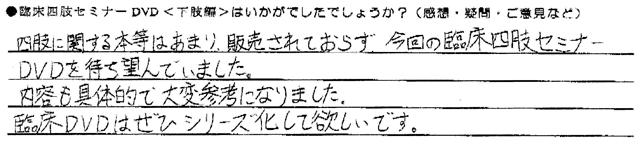 ●臨床四肢セミナーDVD＜下肢編＞はいかがでしたでしょうか？（感想・疑問・ご意見など）
四肢に関する本等はあまり、販売されておらず 今回の臨床四肢セミナー
DVDを待ち望んでいました。
内容も具体的で大変参考になりました。
臨床DVDはぜひシリーズ化して欲しいです。